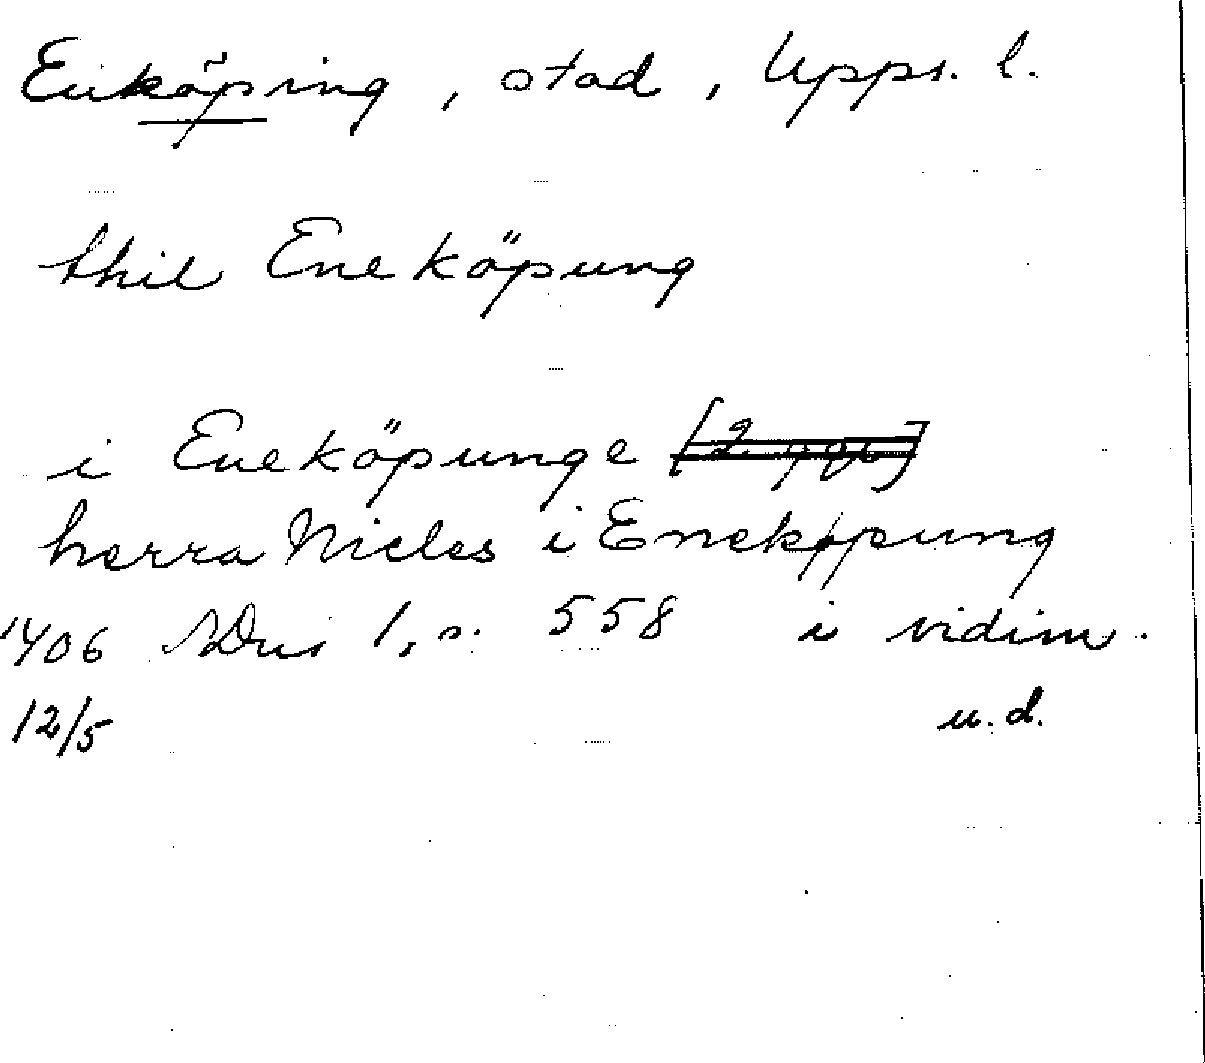 Enköping, stad, Upps. l.
thil Eneköpung
i Eneköpunge [2 ggr]
herra Niclos i Enekøpung
1406 SDns 1, s. 558 i vidim.
12/5 u. d.